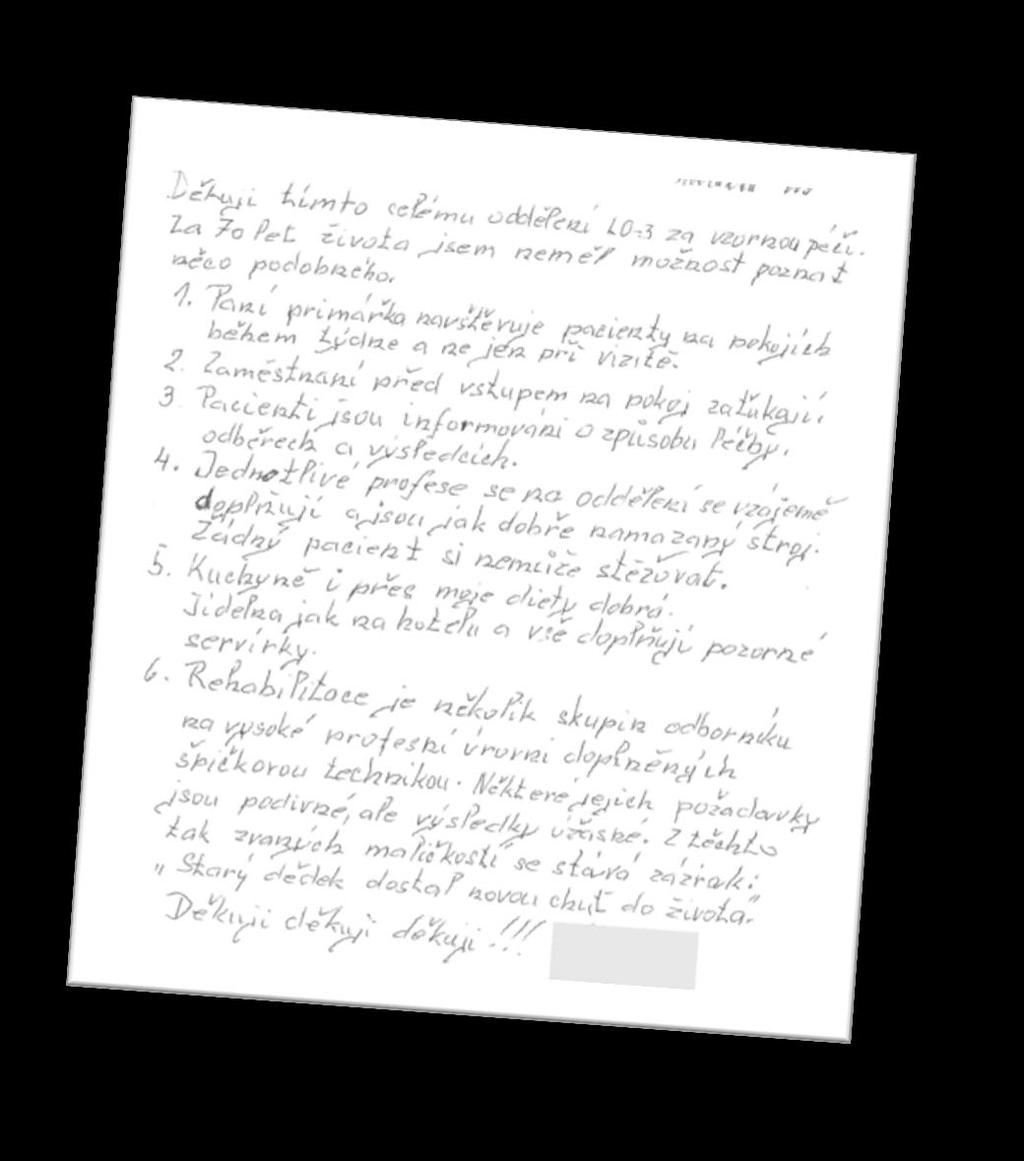 Děkuji tímto celému oddělení LO-3 za vzornou péči.
Za 70 let života jsem neměl možnost poznat
něco podobného.
1. Paní primářka navštěvuje pacienty na pokojích
během týdne a ne jen při vizitě.
2. Zaměstnaní před vstupem na pokoj zaťukají.
3. Pacienti jsou informováni o způsobu léčby,
odběrech a výsledcích.
4. Jednotlivé profese se na oddělení se vzájemě
doplňují a jsou jak dobře namazaný stroj.
Žádný pacient si nemůže stěžovat.
5. Kuchyně i přes moje diety dobrá.
Jídelna jak na hotelu a vše doplňují pozorné
servírky.
6. Rehabilitace je několik skupin odborníku
na vysoké profesní úrovni doplněných
špičkovou technikou. Některé jejich požadavky
jsou podivné, ale výsledky úžasné. Z těchto
tak zvaných maličkostí se stává zázrak:
„Starý dědek dostal novou chuť do života."
Děkuji děkuji děkuji!!!